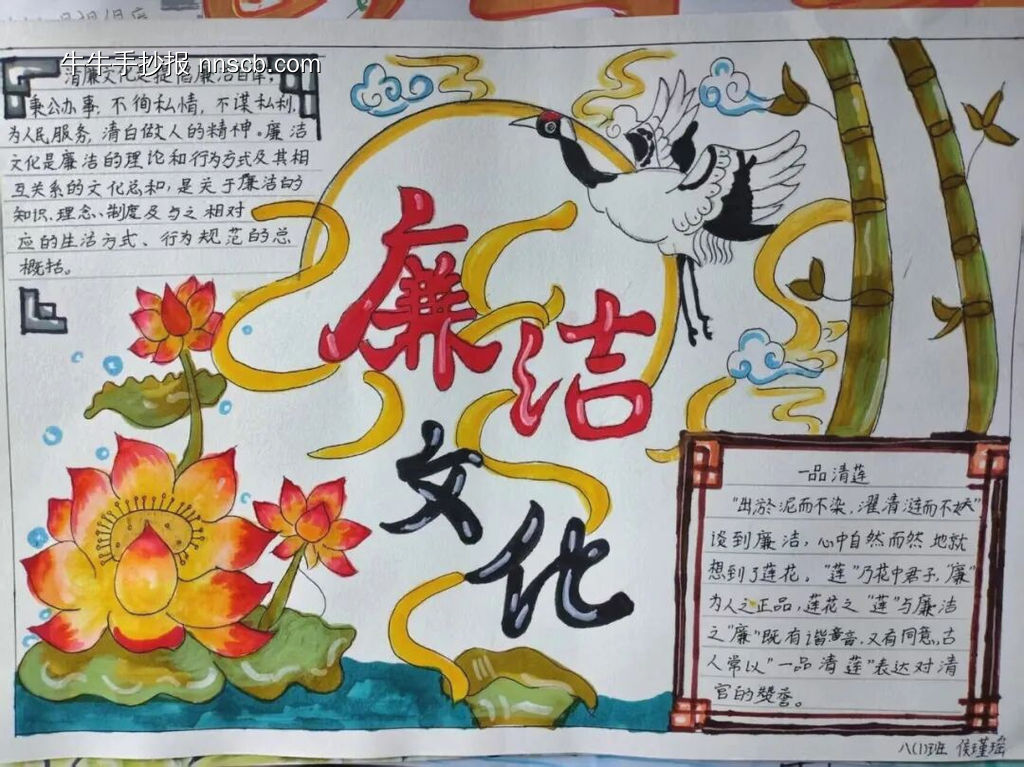 牛牛手抄报 nnscb.com
清廉文化是提倡廉洁自律,
秉公办事,不徇私情,不谋私利,
为人民服务,清白做人的精神。廉洁
文化是廉洁的理论和行为方式及其相
互关系的文化总和,是关于廉洁的
知识、理念、制度及与之相对
应的生活方式、行为规范的总
概括。
廉洁
文化
一品清莲
"出淤泥而不染,濯清涟而不妖"
谈到廉洁,心中自然而然地就
想到了莲花。"莲"乃花中君子,"廉"
为人之正品,莲花之"莲"与廉洁
之"廉"既有谐音,又有同意,古
人常以"一品清莲"表达对清
官的赞誉。
八(1)班 侯瑾瑶